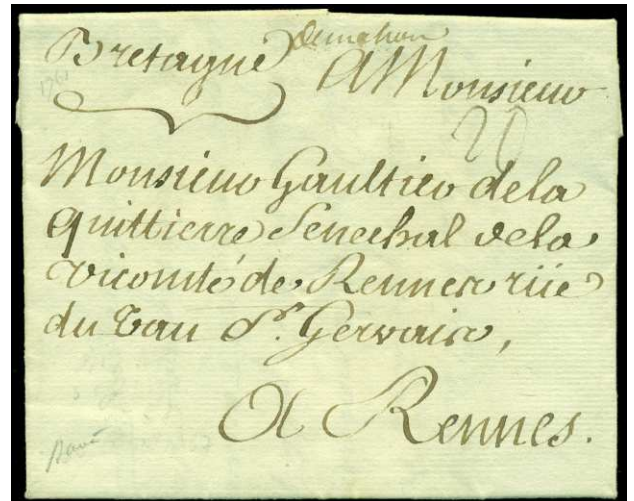 Bretagne A Monsieur
20
Monsieur Gaultier dela
Quittierre Senechal dela
vicomté de Rennes rüe
du tau St. Gervais,
A Rennes.